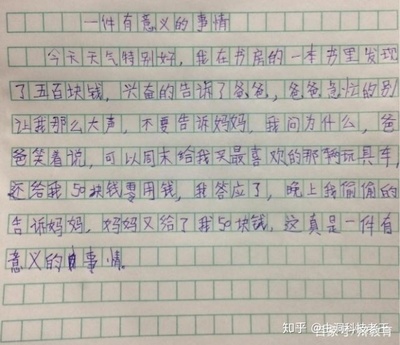 一件有意义的事情
今天天气特别好，我在书房的一本书里发现
了五百块钱，兴奋的告诉了爸爸，爸爸急忙的别
让我那么大声，不要告诉妈妈，我问为什么，爸
爸笑着说，可以周末给我买最喜欢的那辆玩具车，
还给我50块钱零用钱，我答应了，晚上我偷偷的
告诉妈妈，妈妈又给了我50块钱，这真是一件有
意义的事情
知乎